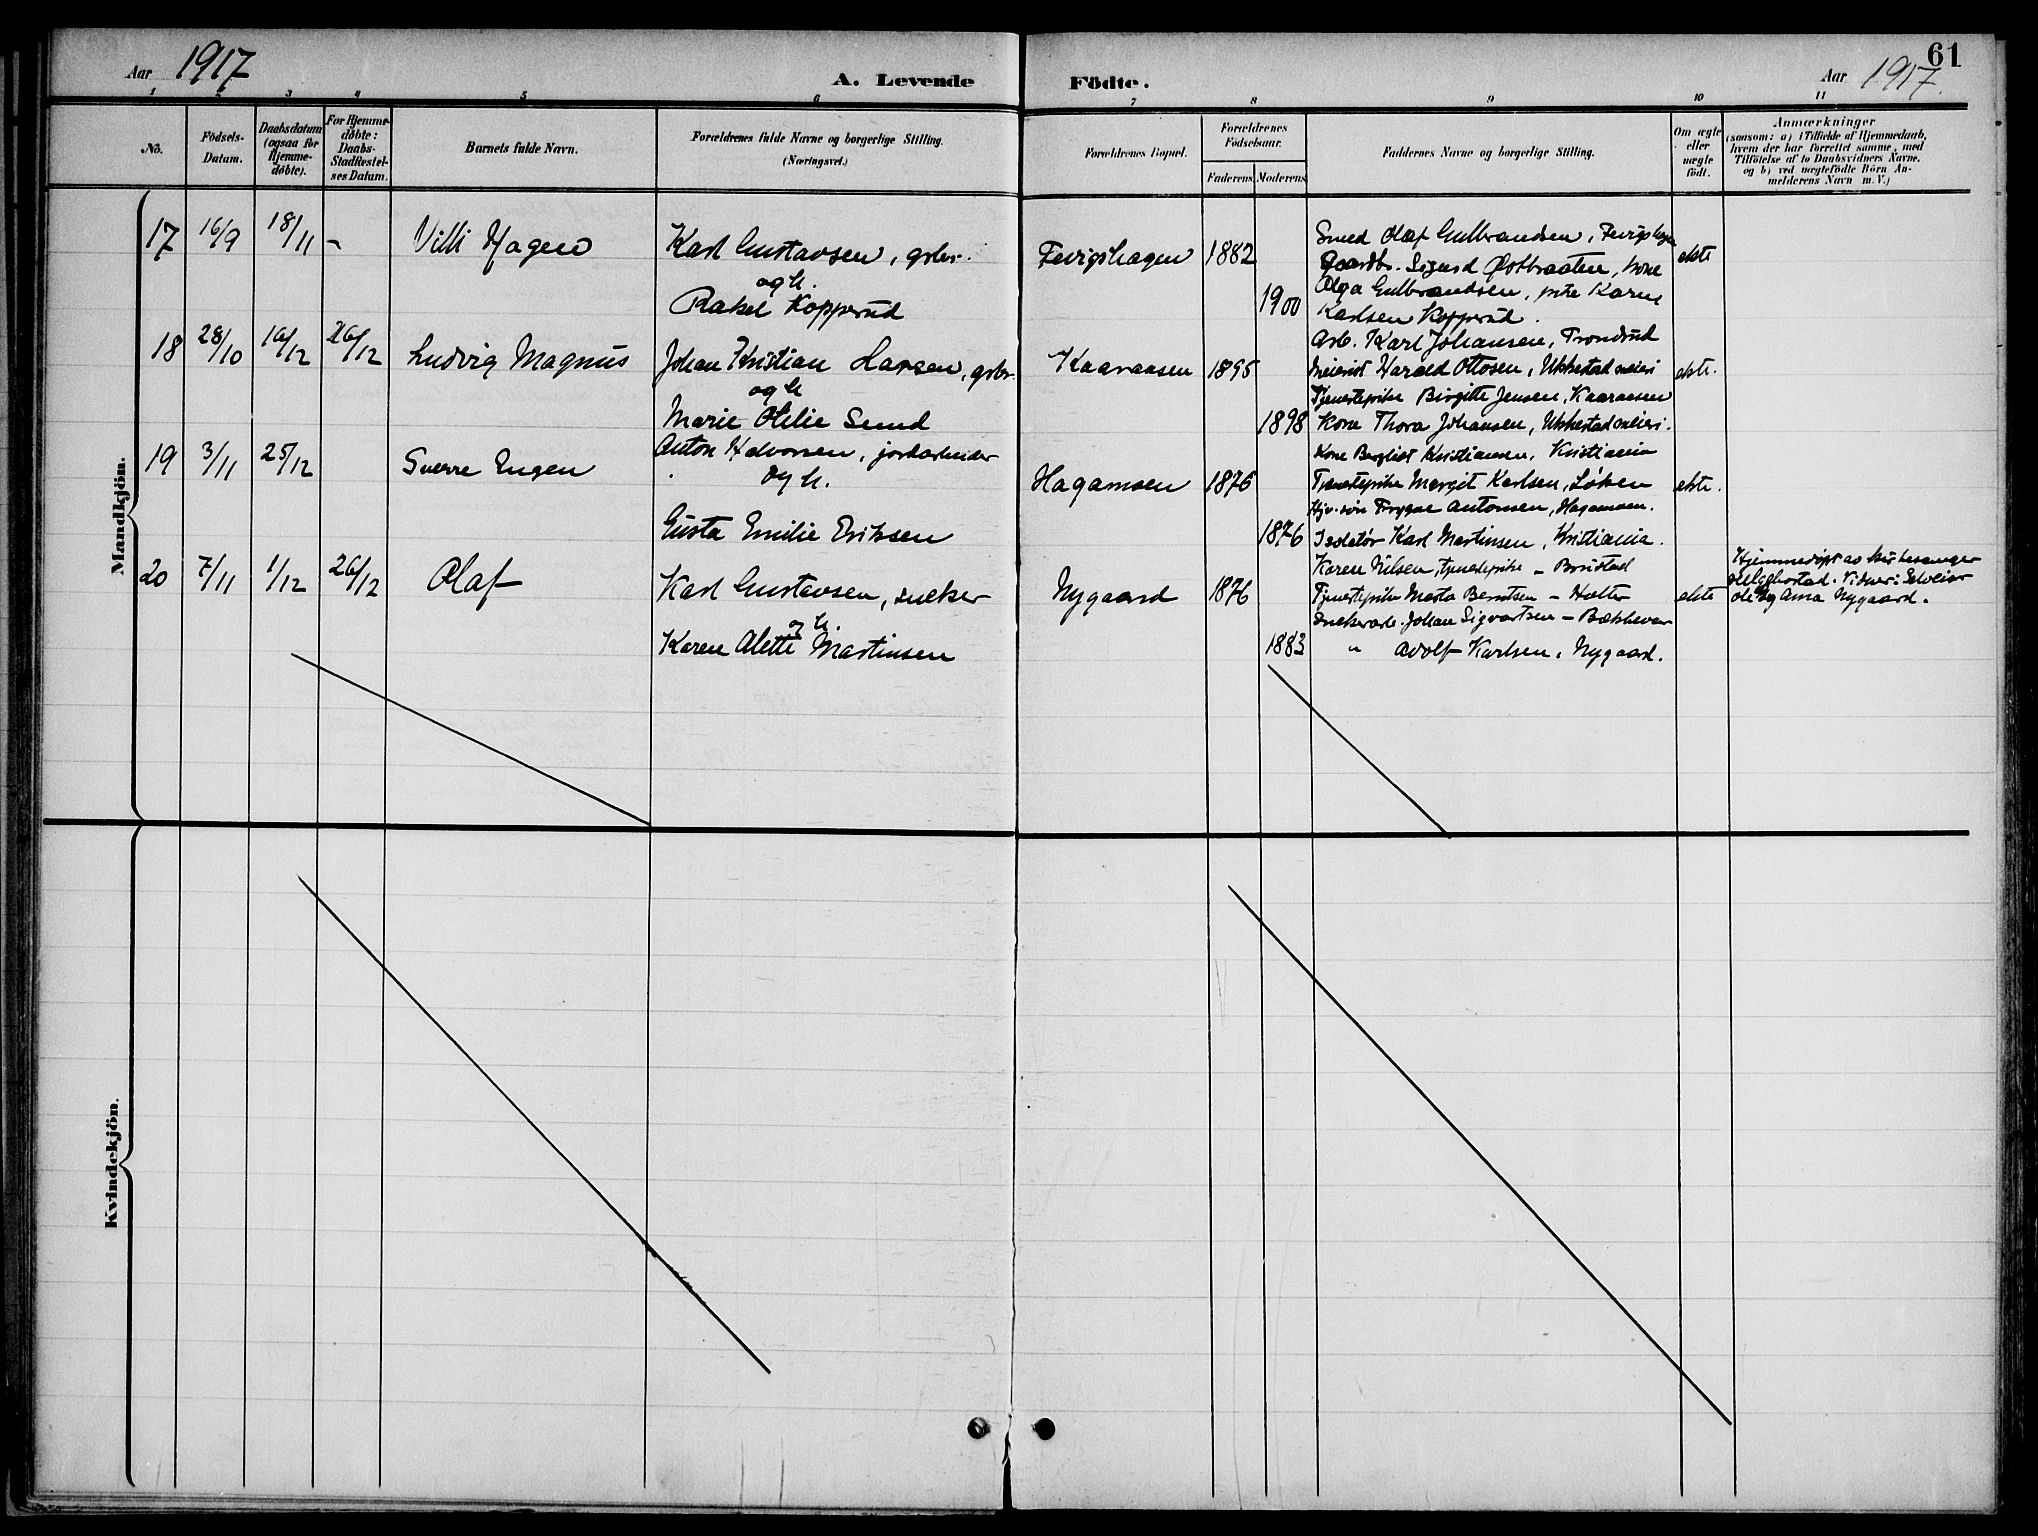 Aar 1917
A. Levende
Födte.
Aar 1917.
61
1 2 3 4 5 6 7 8 9 10 11
Nö.
Födsels-
Datum.
Daabsdatum
(ogsaa for
Hjemme-
døbte).
For Hjemme-
døbte:
Daabs-
Stadfæstel-
ses Datum.
Barnets fulde Navn.
Forældrenes fulde Navne og borgerlige Stilling.
(Næringsvei.)
Forældrenes Bopæl.
Forældrenes
Födselsaar.
Faderens.
Moderens.
Faddernes Navne og borgerlige Stilling.
Om ægte
eller
uægte
født.
Anmærkninger
(saasom: a) i Tilfælde af Hjemmedaab,
hvem der har forrettet samme, med
Tilföielse af to Daabsvidners Navne.
og b) ved uægtefödte Börn An-
melderens Navn m. V.)
Mandkjön.
17 16/9 18/11 - Villi Hagen
Karl Gustavsen, grbr.
og h.
Rakel Kopperud
Fevigshagen 1882
1900
Smed Olaf Gulbrandsen, Fevigshagen
Gaardbr. Sigurd Østbraaten, kone
Olga Gulbrandsen, pike Karen
Karlsen Kopperud.
ekte
18 28/10 16/12 26/12 Ludvig Magnus
Johan Kristian Hansen, grbr.
og h
Marie Otilie Sund
Kaaraasen 1895
1898
Arb. Karl Johansen, Trondrud
Meierist Harald Ottosen, Ukkestad meieri
Tjenestepike Birgitte Jensen, Kaaraasen
Kone Thora Johansen, Ukkestad meieri.
ekte.
19 3/11 25/12 Sverre Engen
Anton Halvorsen, jordarbeider
og h.
Gusta Emilie Eriksen
Hagamoen 1876
1876
Kone Bergliot Kristiansen, Kristiania
Tjenestepike Margit Karlsen, Løken
Trygve Antonsen, Hagamoen.
Isolatør Karl Martinsen, Kristiania.
ekte.
20 7/11 1/12 26/12 Olaf
Karl Gustavsen, snekker
og h.
Karen Alette Martinsen
Nygaard 1876
1883
Karen Nilsen, tjenestepike - Brustad
Tjenestepike Marta Berntsen - Holter
Snekkerarb. Johan Sigvartsen - Bækkevar
" Adolf Karlsen, Nygaard.
ekte
Hjemmedøpt av kirkesanger
Helge Hostad. Vidner:
Ole og Anna Nygaard.
Kvindekjön.